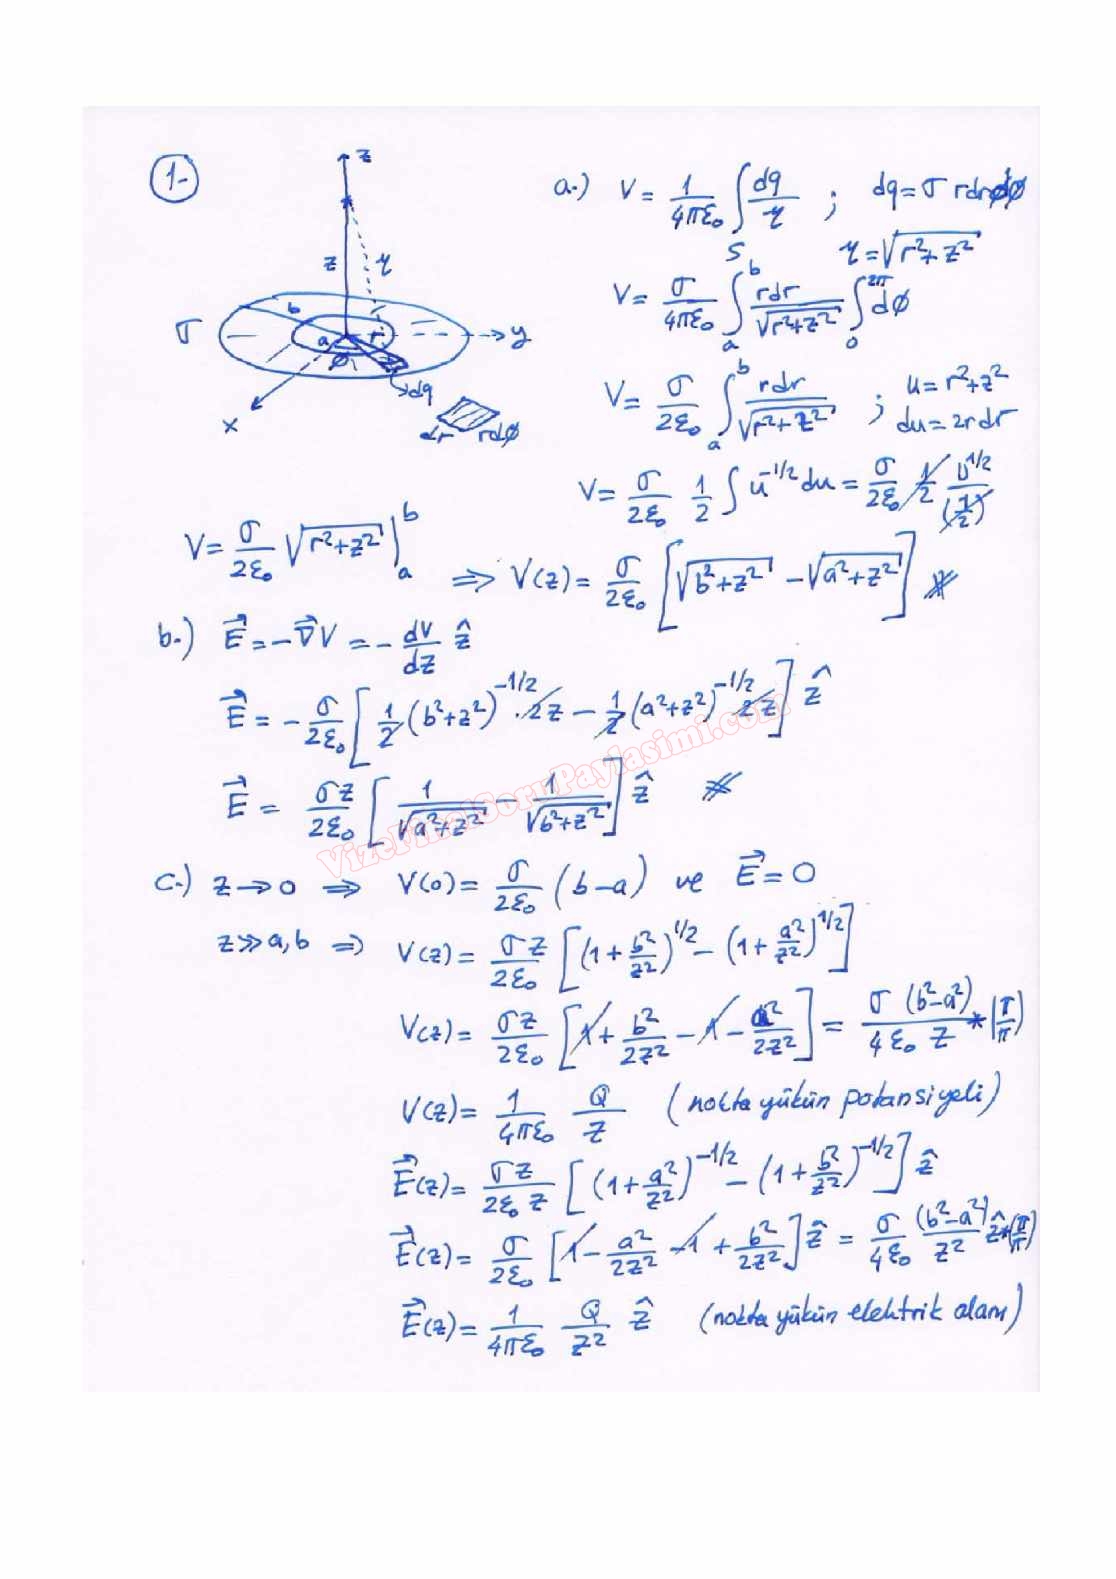 1-
z
z
𝓇
σ
b
a
r
y
ϕ
dq
x
dr rdϕ
a.) V = 1/(4πε₀) ∫_S dq/𝓇 ; dq = σ r dr dϕ
𝓇 = √(r²+z²)
V = σ/(4πε₀) ∫_a^b rdr/√(r²+z²) ∫_0^{2π} dϕ
V = σ/(2ε₀) ∫_a^b rdr/√(r²+z²) ; u = r²+z²
du = 2rdr
V = σ/(2ε₀) 1/2 ∫ u^{-1/2} du = σ/(2ε₀) 1/2 U^{1/2}/(1/2)
V = σ/(2ε₀) √(r²+z²) |_a^b ⇒ V(z) = σ/(2ε₀) [√(b²+z²) - √(a²+z²)]
b.) E⃗ = -∇⃗V = - dV/dz ẑ
E⃗ = - σ/(2ε₀) [1/2 (b²+z²)^{-1/2} · 2z - 1/2 (a²+z²)^{-1/2} 2z] ẑ
E⃗ = σz/(2ε₀) [1/√(a²+z²) - 1/√(b²+z²)] ẑ
VizeFinalSoruPaylasimi.com
c.) z→0 ⇒ V(0) = σ/(2ε₀) (b-a) ve E⃗ = 0
z≫a,b ⇒ V(z) = σz/(2ε₀) [(1+b²/z²)^{1/2} - (1+a²/z²)^{1/2}]
V(z) = σz/(2ε₀) [1 + b²/2z² - 1 - a²/2z²] = σ(b²-a²)/(4ε₀ z) * (π/π)
V(z) = 1/(4πε₀) Q/z (nokta yükün potansiyeli)
E⃗(z) = σz/(2ε₀ z) [(1+a²/z²)^{-1/2} - (1+b²/z²)^{-1/2}] ẑ
E⃗(z) = σ/(2ε₀) [1 - a²/2z² - 1 + b²/2z²] ẑ = σ/(4ε₀) (b²-a²)/z² ẑ * (π/π)
E⃗(z) = 1/(4πε₀) Q/z² ẑ (nokta yükün elektrik alanı)